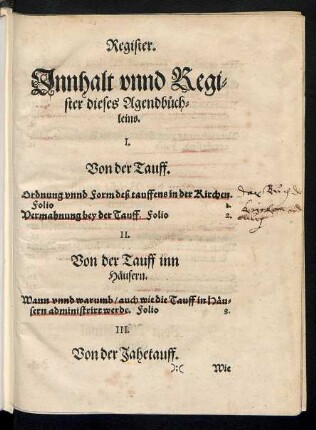 Register.
Innhalt vnnd Regi-
ster dieses Agendbüch-
leins.
I.
Von der Tauff.
Ordnung vnnd Form deß tauffens in der Kirchen.
Folio 1.
Vermahnung bey der Tauff. Folio 2.
II.
Von der Tauff inn
Häusern.
Wann vnnd warumb / auch wie die Tauff in Häu-
sern administrirt werde. Folio 3.
III.
Von der Jahetauff.
):( Wie